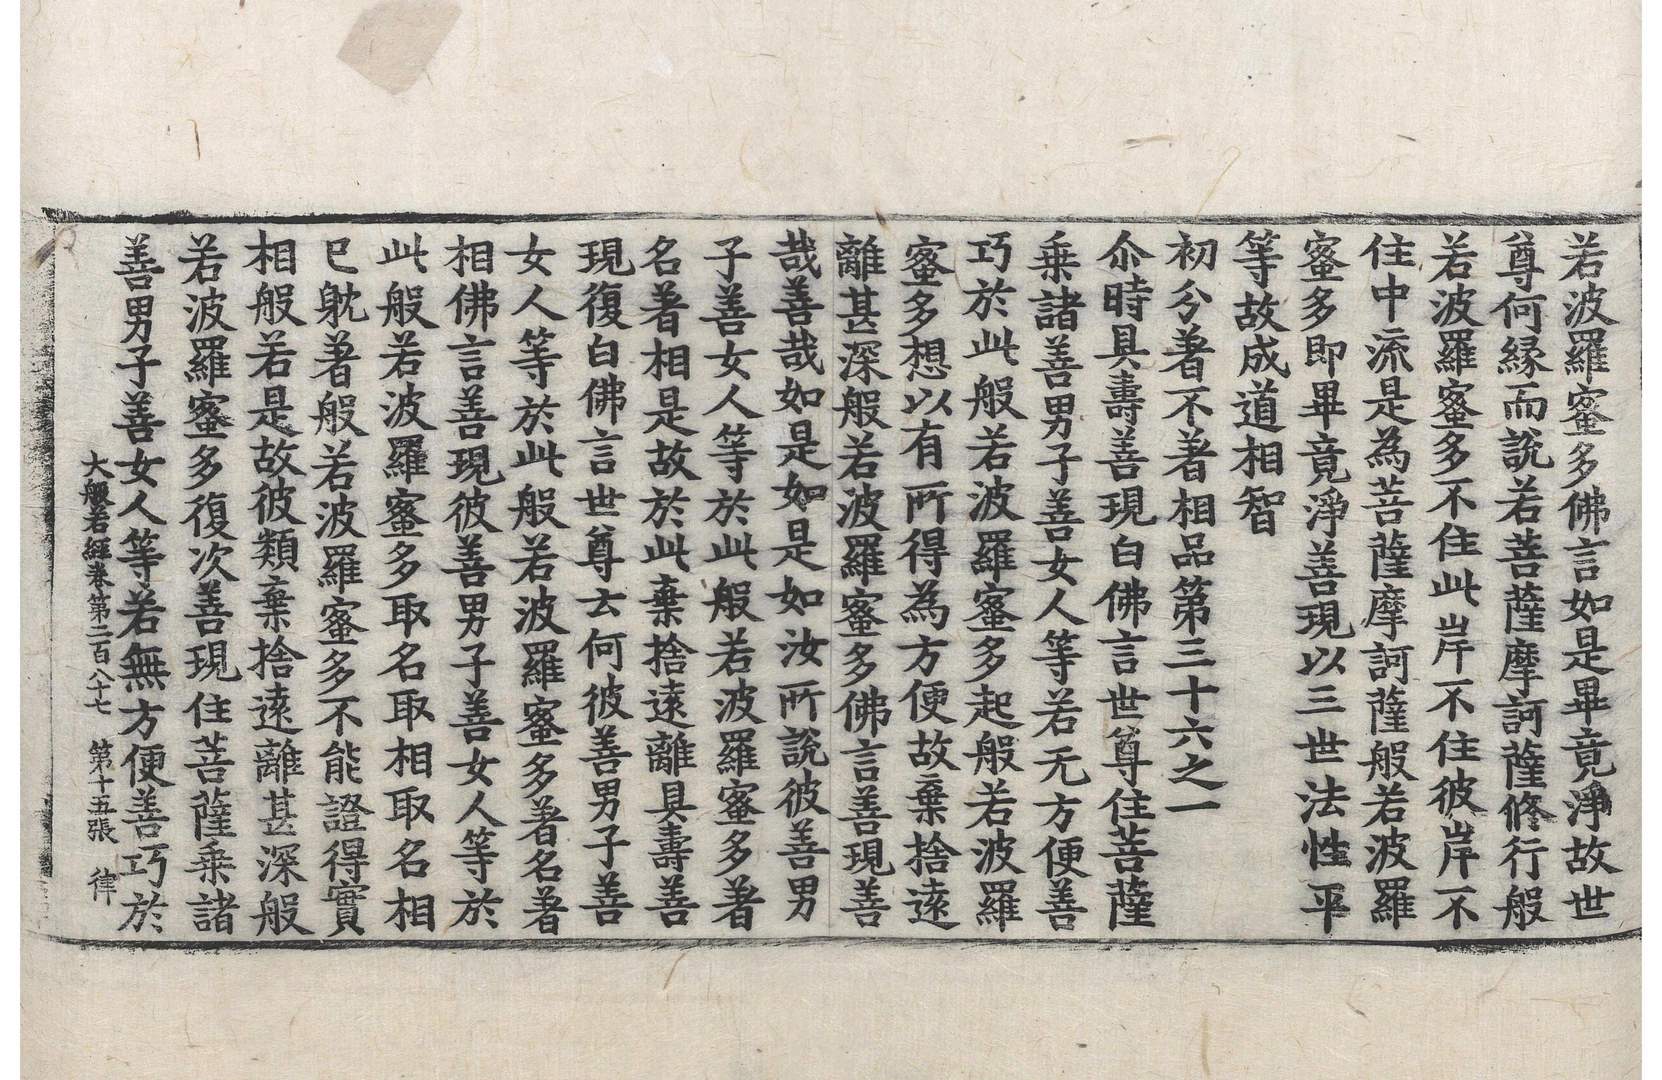 若波羅蜜多佛言如是畢竟淨故世
尊何緣而說若菩薩摩訶薩修行般
若波羅蜜多不住此岸不住彼岸不
住中流是為菩薩摩訶薩般若波羅
蜜多即畢竟淨善現以三世法性平
等故成道相智
初分著不著相品第三十六之一
尒時具壽善現白佛言世尊住菩薩
乗諸善男子善女人等若无方便善
巧於此般若波羅蜜多起般若波羅
蜜多想以有所得為方便故棄捨遠
離甚深般若波羅蜜多佛言善現善
哉善哉如是如是如汝所說彼善男
子善女人等於此般若波羅蜜多著
名著相是故於此棄捨遠離具壽善
現復白佛言世尊云何彼善男子善
女人等於此般若波羅蜜多著名著
相佛言善現彼善男子善女人等於
此般若波羅蜜多取名取相取名相
已躭著般若波羅蜜多不能證得實
相般若是故彼類棄捨遠離甚深般
若波羅蜜多復次善現住菩薩乗諸
善男子善女人等若無方便善巧於
大般若經卷第二百八十七 第十五張 律